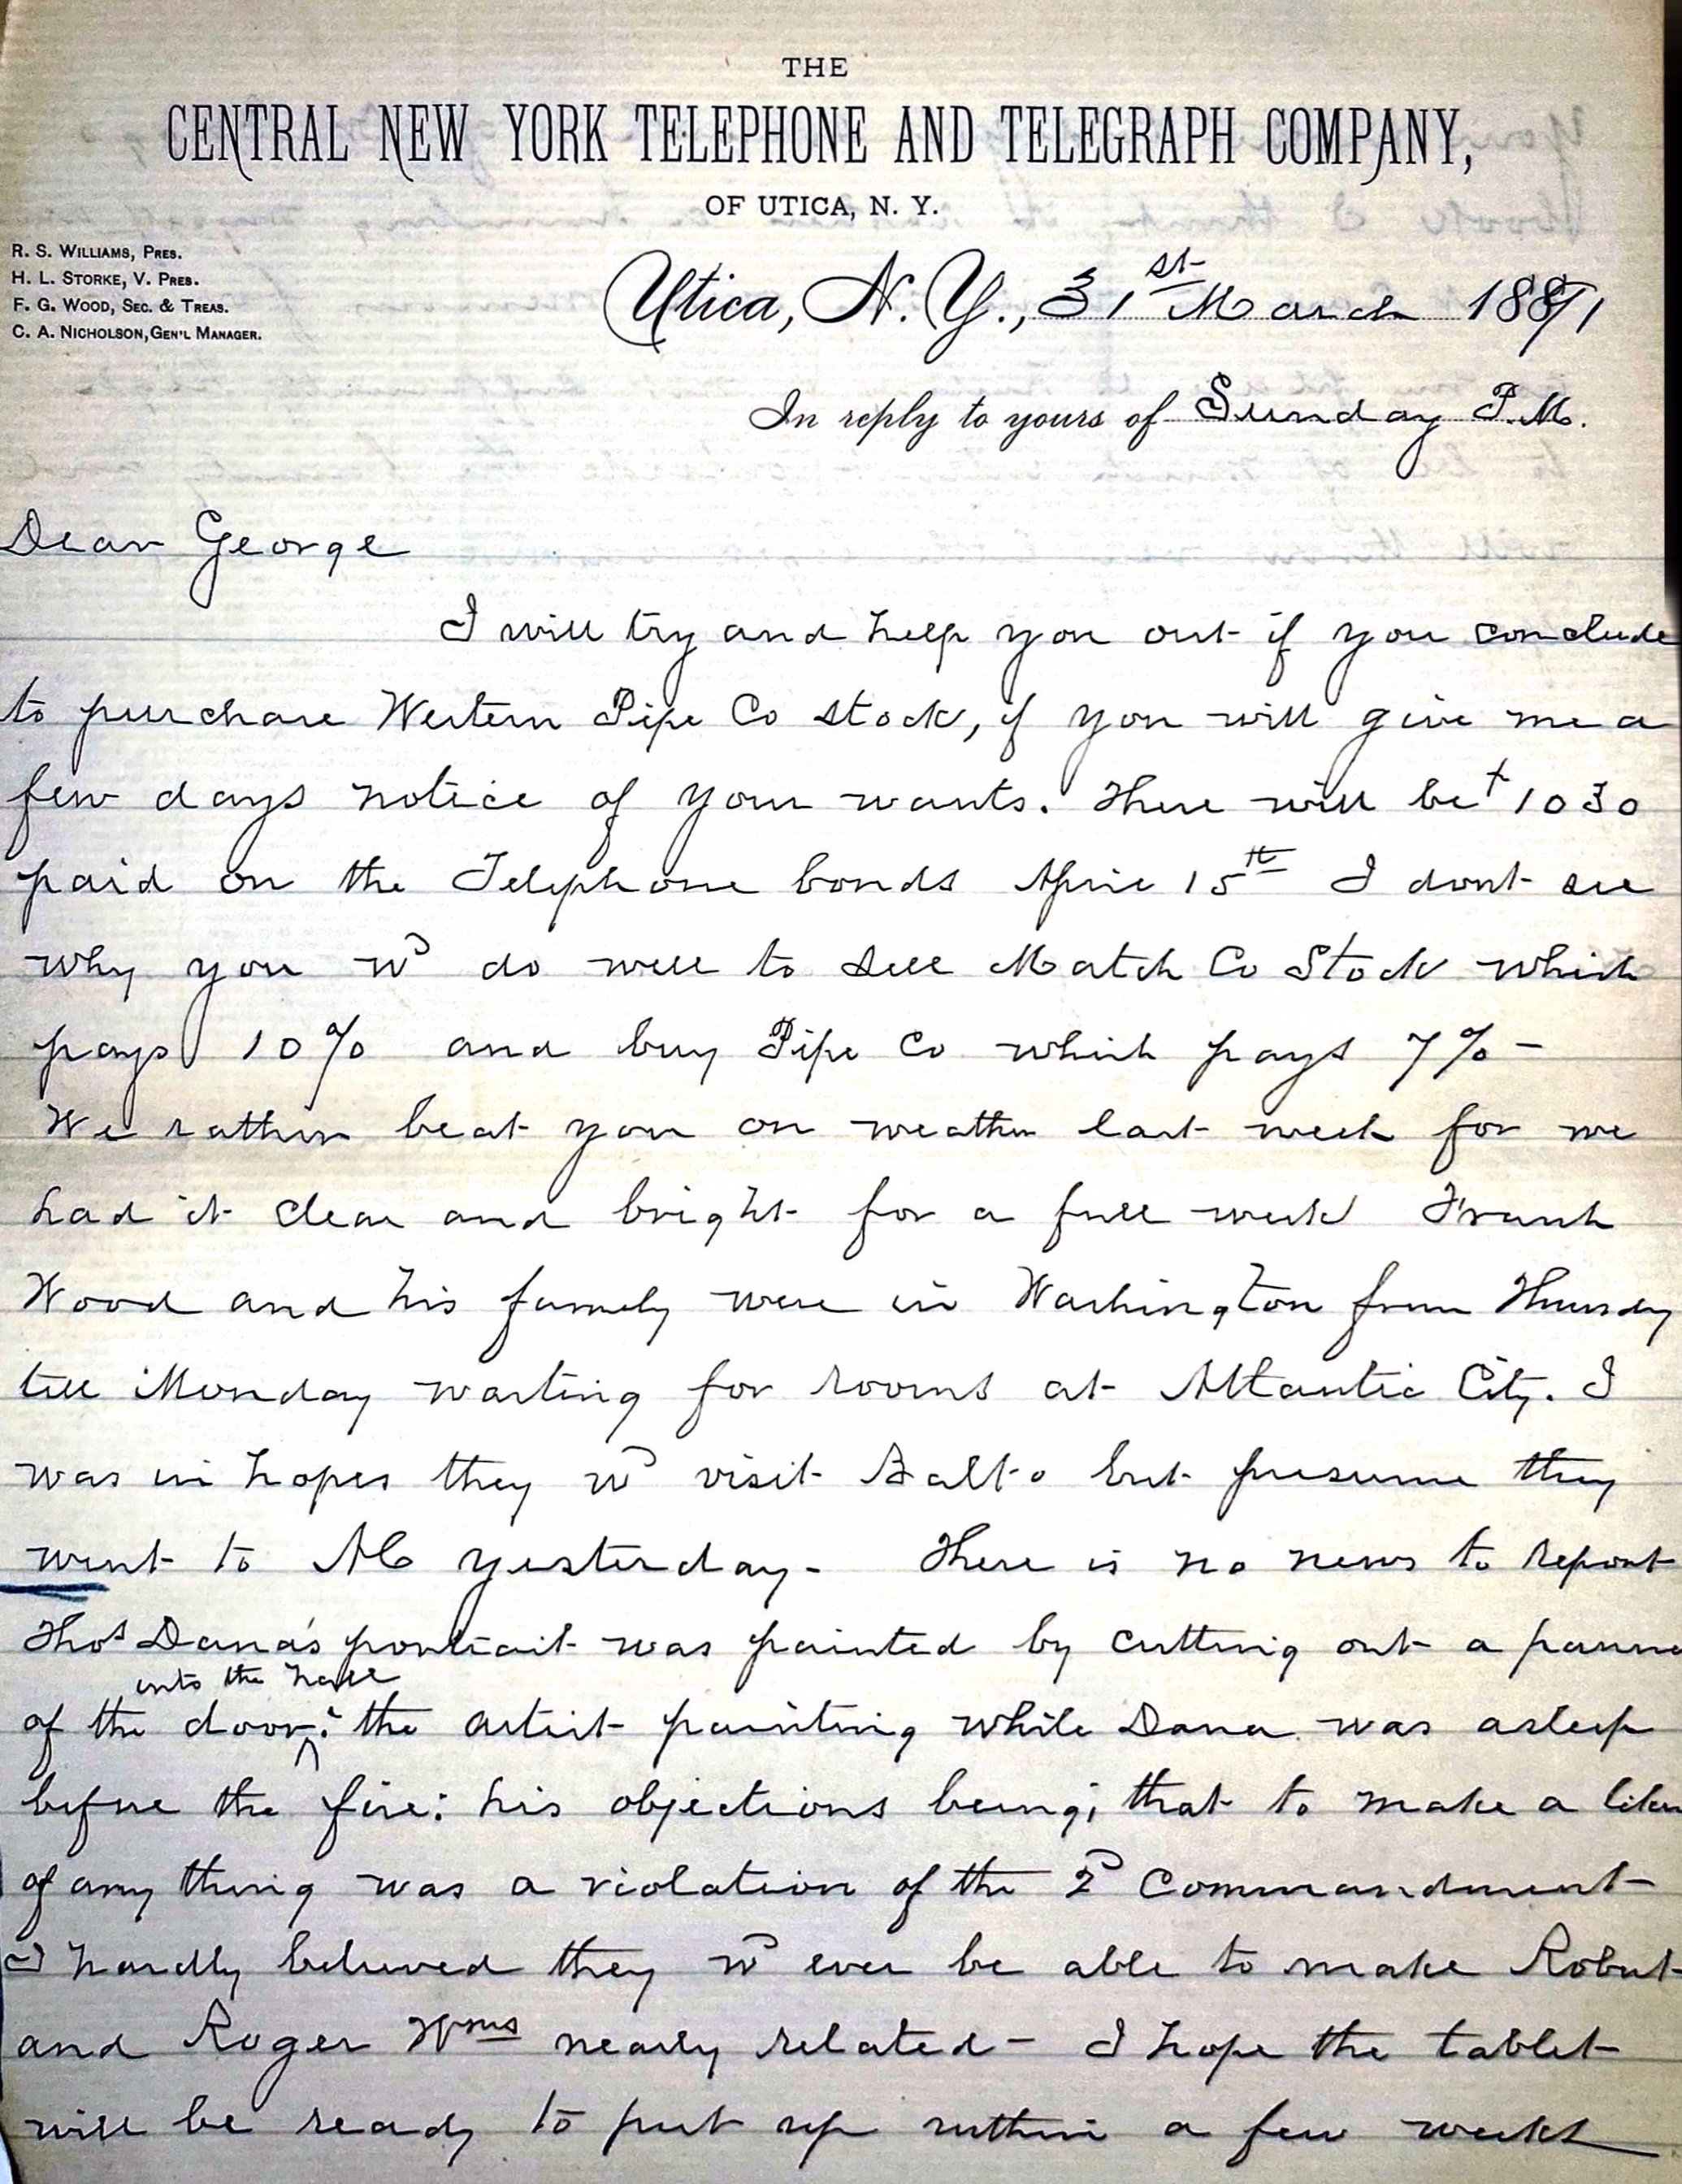 THE
CENTRAL NEW YORK TELEPHONE AND TELEGRAPH COMPANY,
OF UTICA, N. Y.
R. S. WILLIAMS, PRES.
H. L. STORKE, V. PRES.
F. G. WOOD, SEC. & TREAS.
C. A. NICHOLSON, GEN'L MANAGER.
Utica, N. Y., 31st March 1891
In reply to yours of Sunday P.M.
Dear George
I will try and help you out if you conclude
to purchase Western Pipe Co stock, if you will give me a
few days notice of your wants. There will be 1030
paid on the Telephone bonds April 15th I dont see
why you wd do well to sell Match Co Stock which
pays 10% and buy Pipe Co which pays 7% -
We rather beat you on weather last week for we
had it clear and bright for a full week Frank
Wood and his family were in Washington from Thursday
till Monday waiting for rooms at Atlantic City. I
was in hopes they wd visit Balto but presume they
went to AC yesterday - There is no news to report
Thos Dana's portrait was painted by cutting out a
into the hall
of the door: the artist painting while Dana was asleep
before the fire: his objections being; that to make a
of any thing was a violation of the 2d Commandment
I hardly believed they wd ever be able to make Robert
and Roger Wms nearly related - I hope the tablet
will be ready to put up within a few weeks